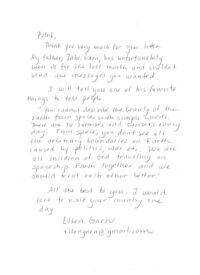 Patrik,
Thank you very much for your letter.
My father, Jake Garn, has unfortunately
been ill for the last month and couldn't
send the messages you wanted.
I will tell you one of his favorite
things to tell people.
"You cannot describe the beauty of the
Earth from space with simple words.
There are 16 sunrises and sunsets every
day. From space, you don't see all
the arbitrary boundaries on Earth
caused by politics, war etc. We are
all children of God traveling on
spaceship Earth together and we
should treat each other better."
All the best to you. I would
love to visit your country one
day
Ellen Garn